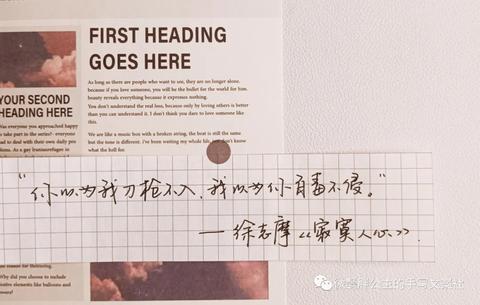 FIRST HEADING
GOES HERE
As long as there are people who want to see, they are no longer alone.
because if you love someone, you will be the bullet for the world for him.
beauty reveals everything because it expresses nothing.
You don't understand the real loss, because only by loving others is better
than you can understand it. I don't think you dare to love someone like
this.
We are like a music box with a broken string, the beat is still the same
but the tone is different. I've been waiting my whole life, just don't know
what the hell for.
YOUR SECOND
HEADING HERE
Was everyone you approached happy
to take part in the series? - everyone
had to deal with their own daily
“你以为我刀枪不入，我以为你百毒不侵。”
—徐志摩《寂寞人心》.
reason for
Why did you choose to include
elements like balloons and